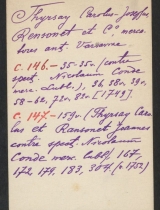 Thyrsay Carolus-Josephus
Ransonet et Co, merca-
tores ant Varenne.
c. 146. — 35-35v (contre
spect. Nicolaum Conde
merc. Lutt.), 36, 38, 39v
58-62, 72v, 85v [1749].
c. 147. — 159v (Thyrsay Caro-
lus et Ransonet Joannes
contre spect. Nicolaum
Conde merc. Lutt.) 167,
172, 179, 183, 304. (a. 1752)